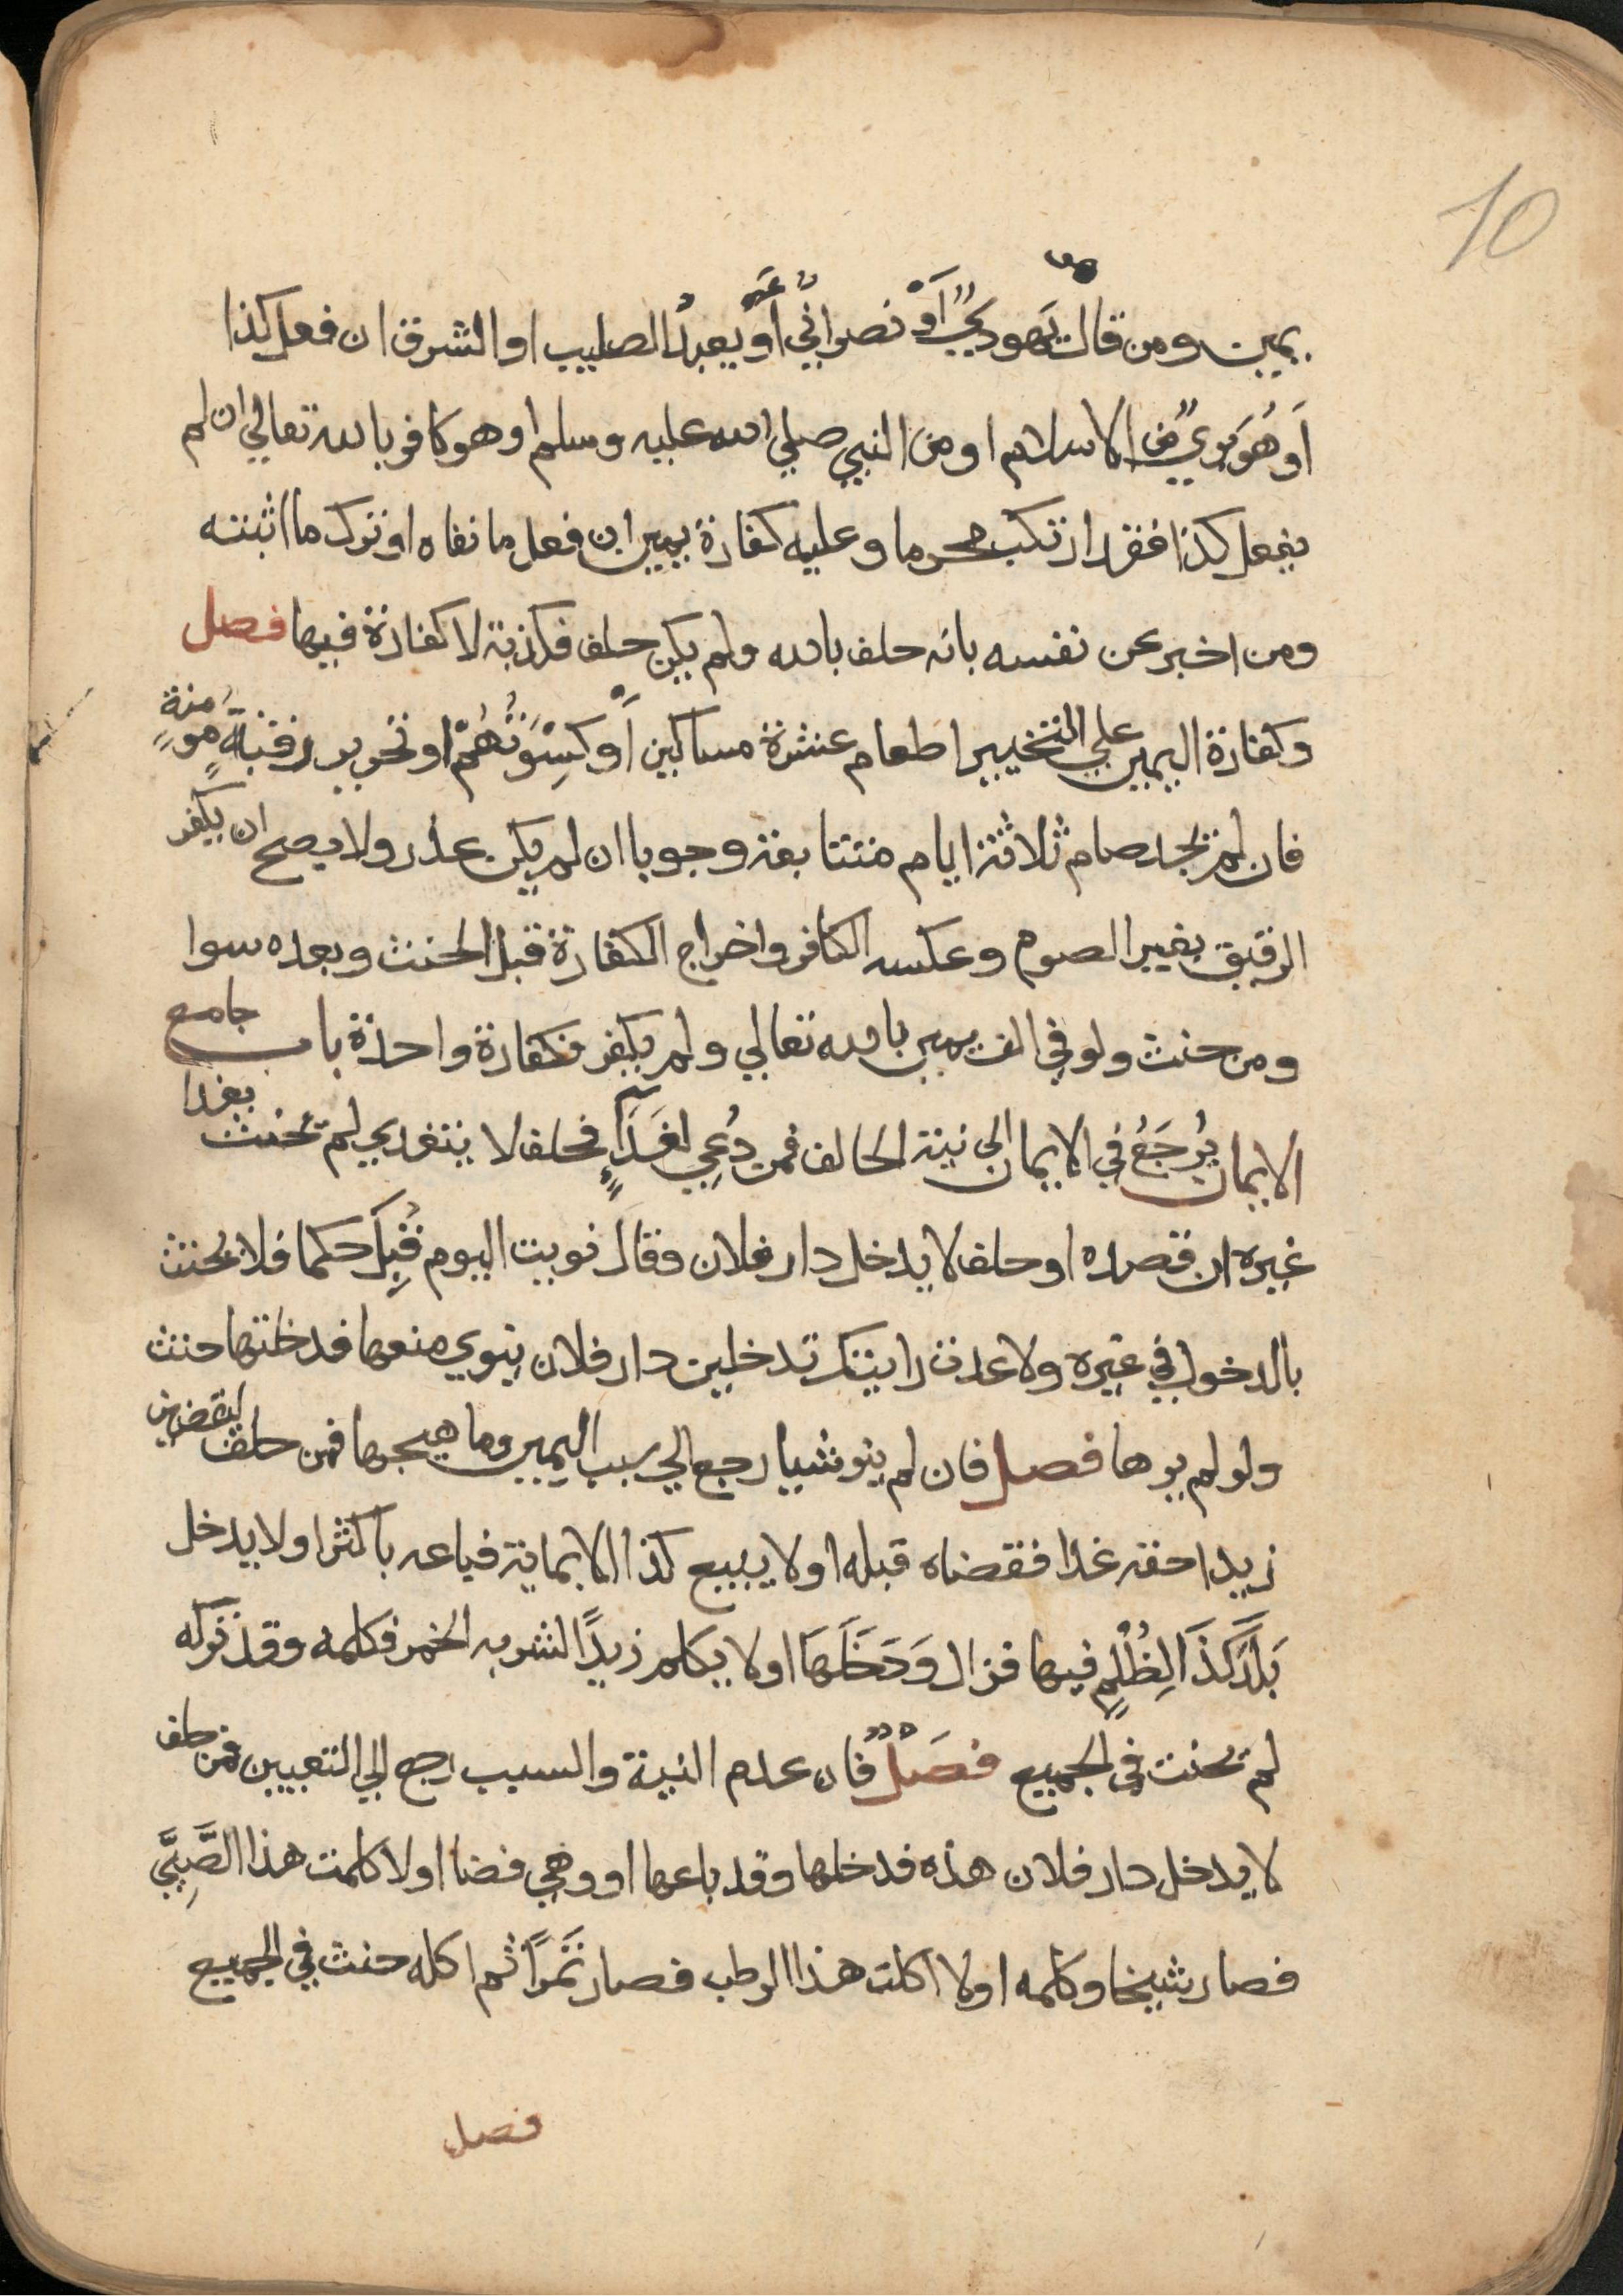 10
هو
يمين ومن قال يهوديٌّ أَوْ نصرانيٌّ أَوْ يعبدُ الصليب او الشرق ان فعل كذا
اَو هُوَ بريٌ من الاسلام او من النبي صلي الله عليه وسلم او هو كافر بالله تعالي ان لم
يفعل كذا فقد ارتكب محرما وعليه كفارة يمين ان فعل ما نفاه او ترك ما اثبته
ومن اخبر عن نفسه بانه حلف بالله ولم يكن حلف فكذبة لا كفارة فيها فصل
وكفارة اليمين علي التخيير اطعام عشرة مساكين أَوْ كِسْوَتُهُمْ او تحرير رقبةٍ مُومنةٍ
فان لم يجد صام ثلاثة ايام متتابعة وجوبا ان لم يكن عذر ولا يصح ان يكفر
الرقيق بغير الصوم وعكسه الكافر واخراج الكفارة قبل الحنث وبعده سوا
ومن حنث ولو في الف يمين بالله تعالي ولم يكفر فكفارة واحدة باب جامع
الايمان يُرجَعُ في الايمان الي نية الحالف فمن دُعِي لغَدَآءٍ فحلف لا يتغدي لم يحنث بغدا
غيره ان قصده او حلف لا يدخل دار فلان وقال نويت اليوم قُبِلَ حكما فلا يحنث
بالدخول في غيره ولا عدت رايتك تدخلين دار فلان ينوي منعها فدخلتها حنث
ولو لم يرها فصل فان لم ينو شيا رجع الي سبب اليمين وما هيجها فمن حلف ليقضين
زيدا حقه غدا فقضاه قبله او لا يبيع كذا الا بماية فباعه باكثر او لا يدخل
بَلَدَ كَذَا لِظُلْمٍ فيها فزال وَدَخَلَهَا او لا يكلم زيدًا لشربه الخمر فكلمه وقد تركه
لم يحنث في الجميع فصل فان عدم النية والسبب رجع الي التعيين فمن حلف
لا يدخل دار فلان هذه فدخلها وقد باعها او وهي فضا او لا كلمت هذا الصَّبِيَّ
فصار شيخا وكلمه او لا اكلت هذا الرطب فصار تَمْراً ثم اكله حنث في الجميع
فصل